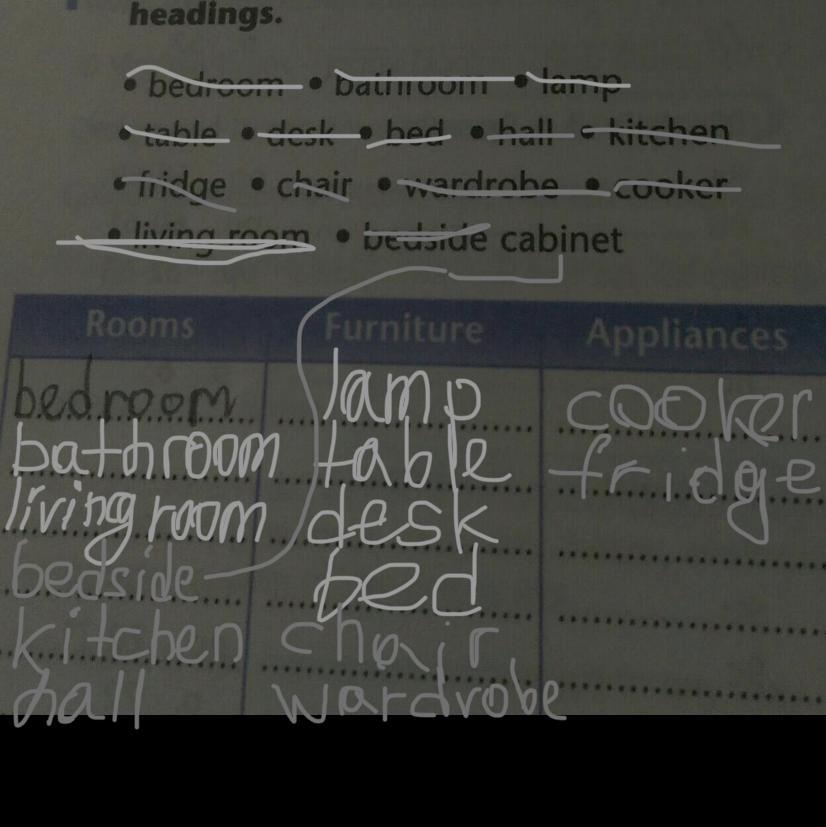 headings.
• bedroom • bathroom • lamp
• table • desk • bed • hall • kitchen
• fridge • chair • wardrobe • cooker
• living room • bedside cabinet
Rooms Furniture Appliances
bedroom lamp cooker
bathroom table fridge
living room desk
bedside bed
kitchen chair
hall wardrobe